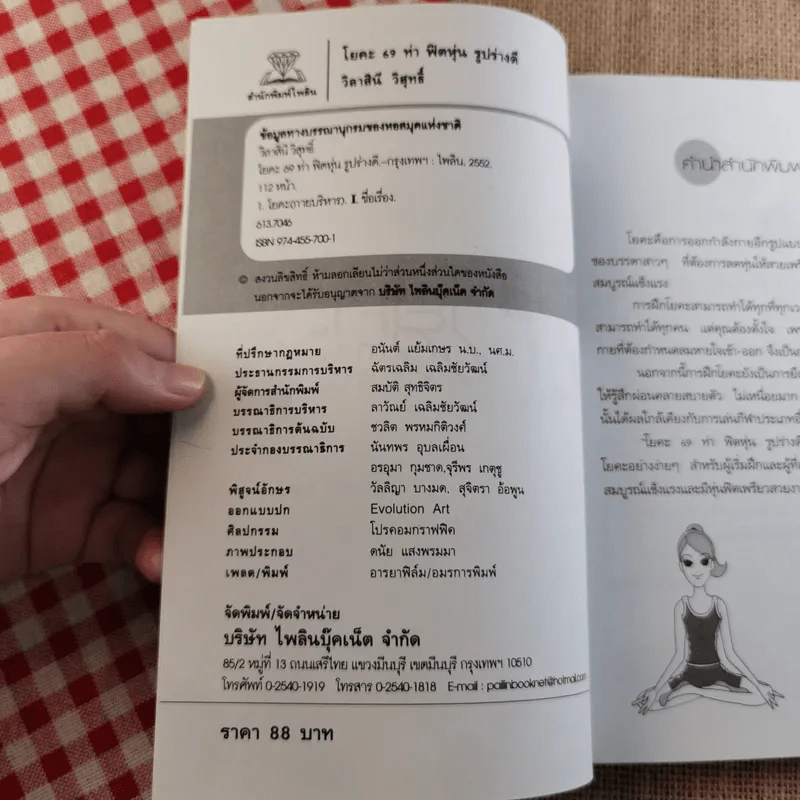 สำนักพิมพ์ไพลิน
โยคะ 69 ท่า ฟิตหุ่น รูปร่างดี
วิลาสินี วิสุทธิ์
ข้อมูลทางบรรณานุกรมของหอสมุดแห่งชาติ
วิลาสินี วิสุทธิ์
โยคะ 69 ท่า ฟิตหุ่น รูปร่างดี.--กรุงเทพฯ : ไพลิน, 2552.
112 หน้า.
1. โยคะ(กายบริหาร). I. ชื่อเรื่อง.
613.7046
ISBN 974-455-700-1
© สงวนลิขสิทธิ์ ห้ามลอกเลียนไม่ว่าส่วนหนึ่งส่วนใดของหนังสือ
นอกจากจะได้รับอนุญาตจาก บริษัท ไพลินบุ๊คเน็ต จำกัด
ที่ปรึกษากฎหมาย อนันต์ แย้มเกษร น.บ., นศ.ม.
ประธานกรรมการบริหาร ฉัตรเฉลิม เฉลิมชัยวัฒน์
ผู้จัดการสำนักพิมพ์ สมบัติ สุทธิจิตร
บรรณาธิการบริหาร ลาวัณย์ เฉลิมชัยวัฒน์
บรรณาธิการต้นฉบับ ชวลิต พรหมกิติวงศ์
ประจำกองบรรณาธิการ นันทพร อุบลเผื่อน
อรอุมา กุมชาด,จุรีพร เกตุชู
พิสูจน์อักษร วัลลิญา บางมด, สุจิตรา อ้อพูน
ออกแบบปก Evolution Art
ศิลปกรรม โปรคอมกราฟฟิค
ภาพประกอบ ดนัย แสงพรมมา
เพลต/พิมพ์ อารยาฟิล์ม/อมรการพิมพ์
จัดพิมพ์/จัดจำหน่าย
บริษัท ไพลินบุ๊คเน็ต จำกัด
85/2 หมู่ที่ 13 ถนนเสรีไทย แขวงมีนบุรี เขตมีนบุรี กรุงเทพฯ 10510
โทรศัพท์ 0-2540-1919 โทรสาร 0-2540-1818 E-mail : pailinbooknet@hotmail.com
ราคา 88 บาท
คำนำสำนักพิมพ์
โยคะคือการออกกำลังกายอีกรูปแบบ
ของบรรดาสาวๆ ที่ต้องการลดหุ่นให้สวยเพรี
สมบูรณ์แข็งแรง
การฝึกโยคะสามารถทำได้ทุกที่ทุกเว
สามารถทำได้ทุกคน แต่คุณต้องตั้งใจ เพร
กายที่ต้องกำหนดลมหายใจเข้า-ออก จึงเป็น
นอกจากนี้การฝึกโยคะยังเป็นการยืด
ให้รู้สึกผ่อนคลายสบายตัว ไม่เหนื่อยมาก
นั้นได้ผลใกล้เคียงกับการเล่นกีฬาประเภทอื่
"โยคะ 69 ท่า ฟิตหุ่น รูปร่างดี
โยคะอย่างง่ายๆ สำหรับผู้เริ่มฝึกและผู้ที่
สมบูรณ์แข็งแรงและมีหุ่นฟิตเพรียวสวยงา